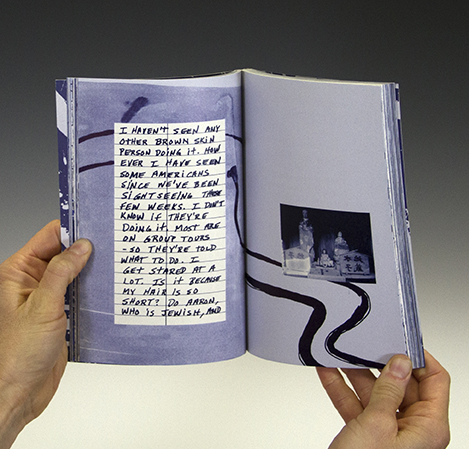 I HAVEN'T SEEN ANY
OTHER BROWN SKIN
PERSON DOING IT. HOW
EVER I HAVE SEEN
SOME AMERICANS
SINCE WE'VE BEEN
SIGHTSEEING THESE
FEW WEEKS. I DON'T
KNOW IF THEY'RE
DOING IT. MOST ARE
ON GROUP TOURS
- SO THEY'RE TOLD
WHAT TO DO. I
GET STARED AT A
LOT. IS IT BECAUSE
MY HAIR IS SO
SHORT? DO AARON,
WHO IS JEWISH, AND